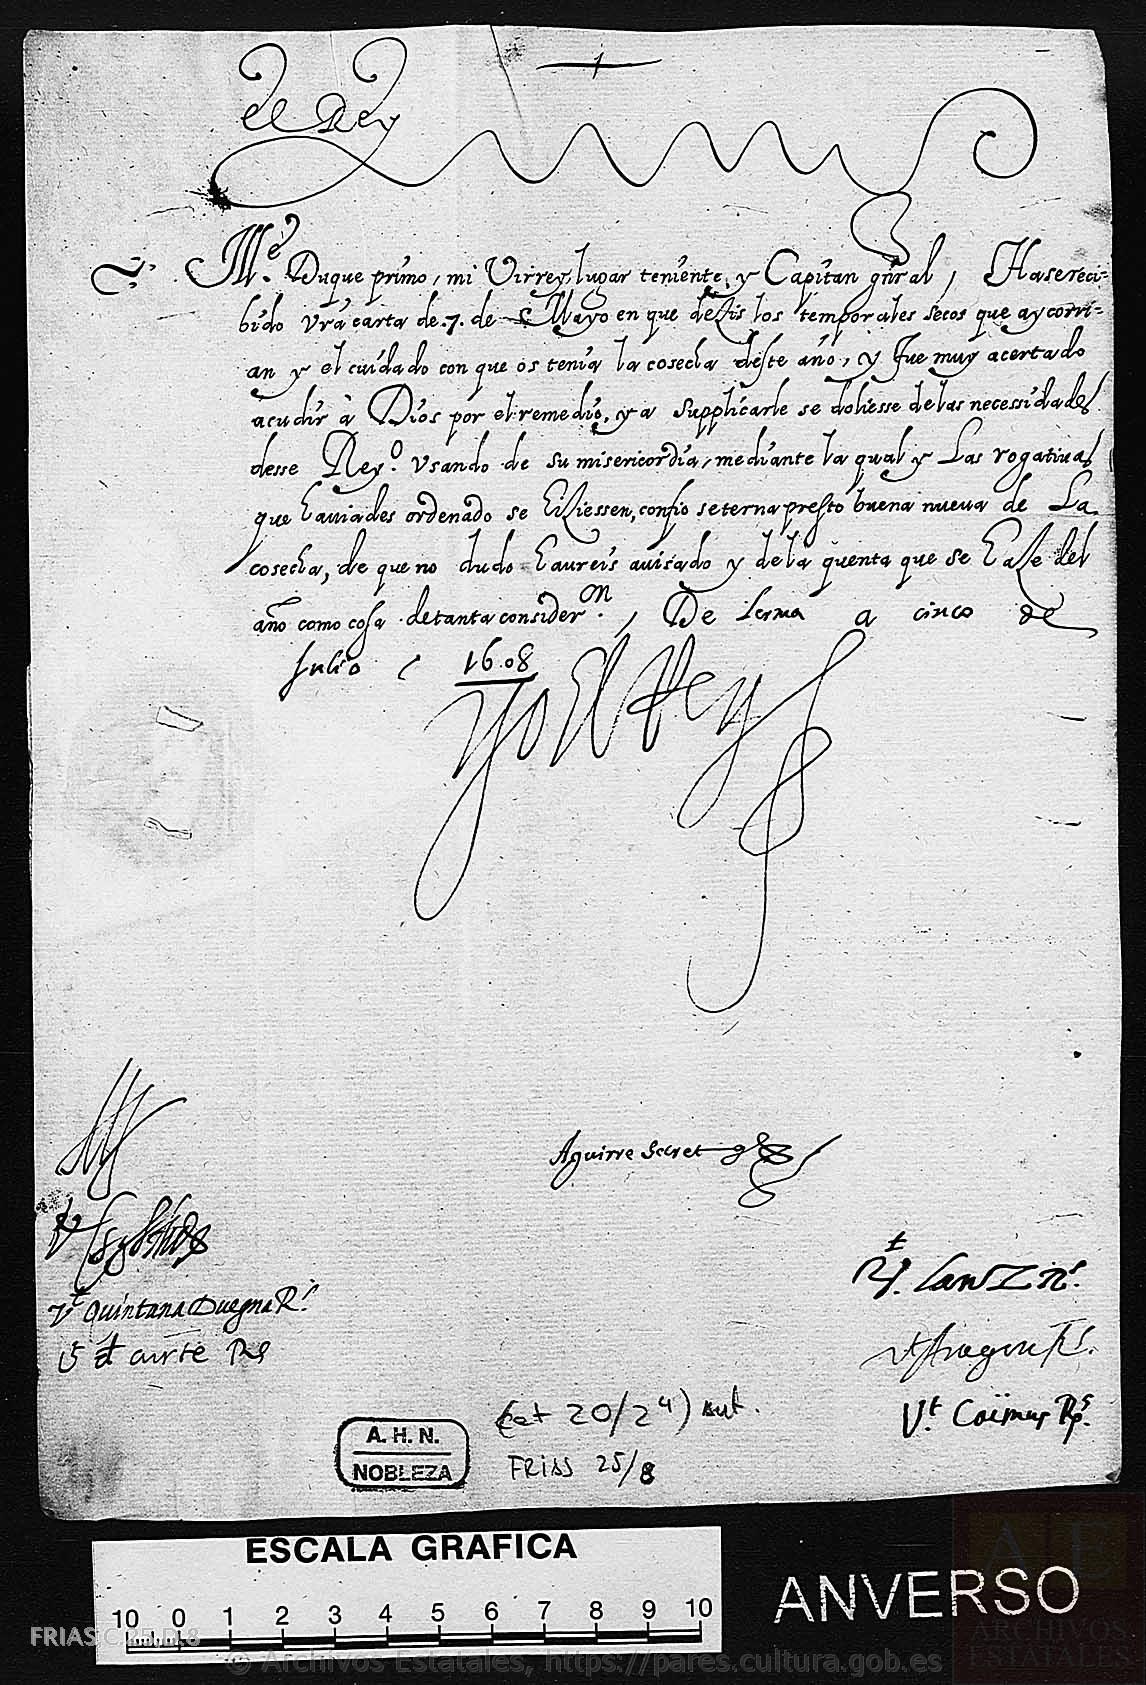 El Rey
Ill.e Duque primo, mi Virrey, lugar teniente, y Capitan gñral, Hasereci-
bido vrã carta de .7. de Mayo en que dezis los temporales secos que ay corri-
an y el cuidado con que os tenia la cosecha deste año, y fue muy acertado
acudir à Dios por el remedio, y a supplicarle se doliesse de las necessidades
desse Reyº. Usando de su misericordia, mediante la qual y Las rogativas
que hauiades ordenado se hiziessen, confio seterna presto buena nueva de La
cosecha, de que no dudo haureis auisado y de la quenta que se haze del
año como cosa de tanta consideron., De Lerma a cinco de
Julio, 1608
Yo El Rey
Aguirre Secret
Vt Quintana Dueyna R.s
Vt Caimus Rs.
20/24) aut.
FRIAS 25/8
A. H. N.
NOBLEZA
ESCALA GRAFICA
10 0 1 2 3 4 5 6 7 8 9 10
ANVERSO
FRIAS C.25,D.8
© Archivos Estatales, https://pares.cultura.gob.es
AE
ARCHIVOS
ESTATALES